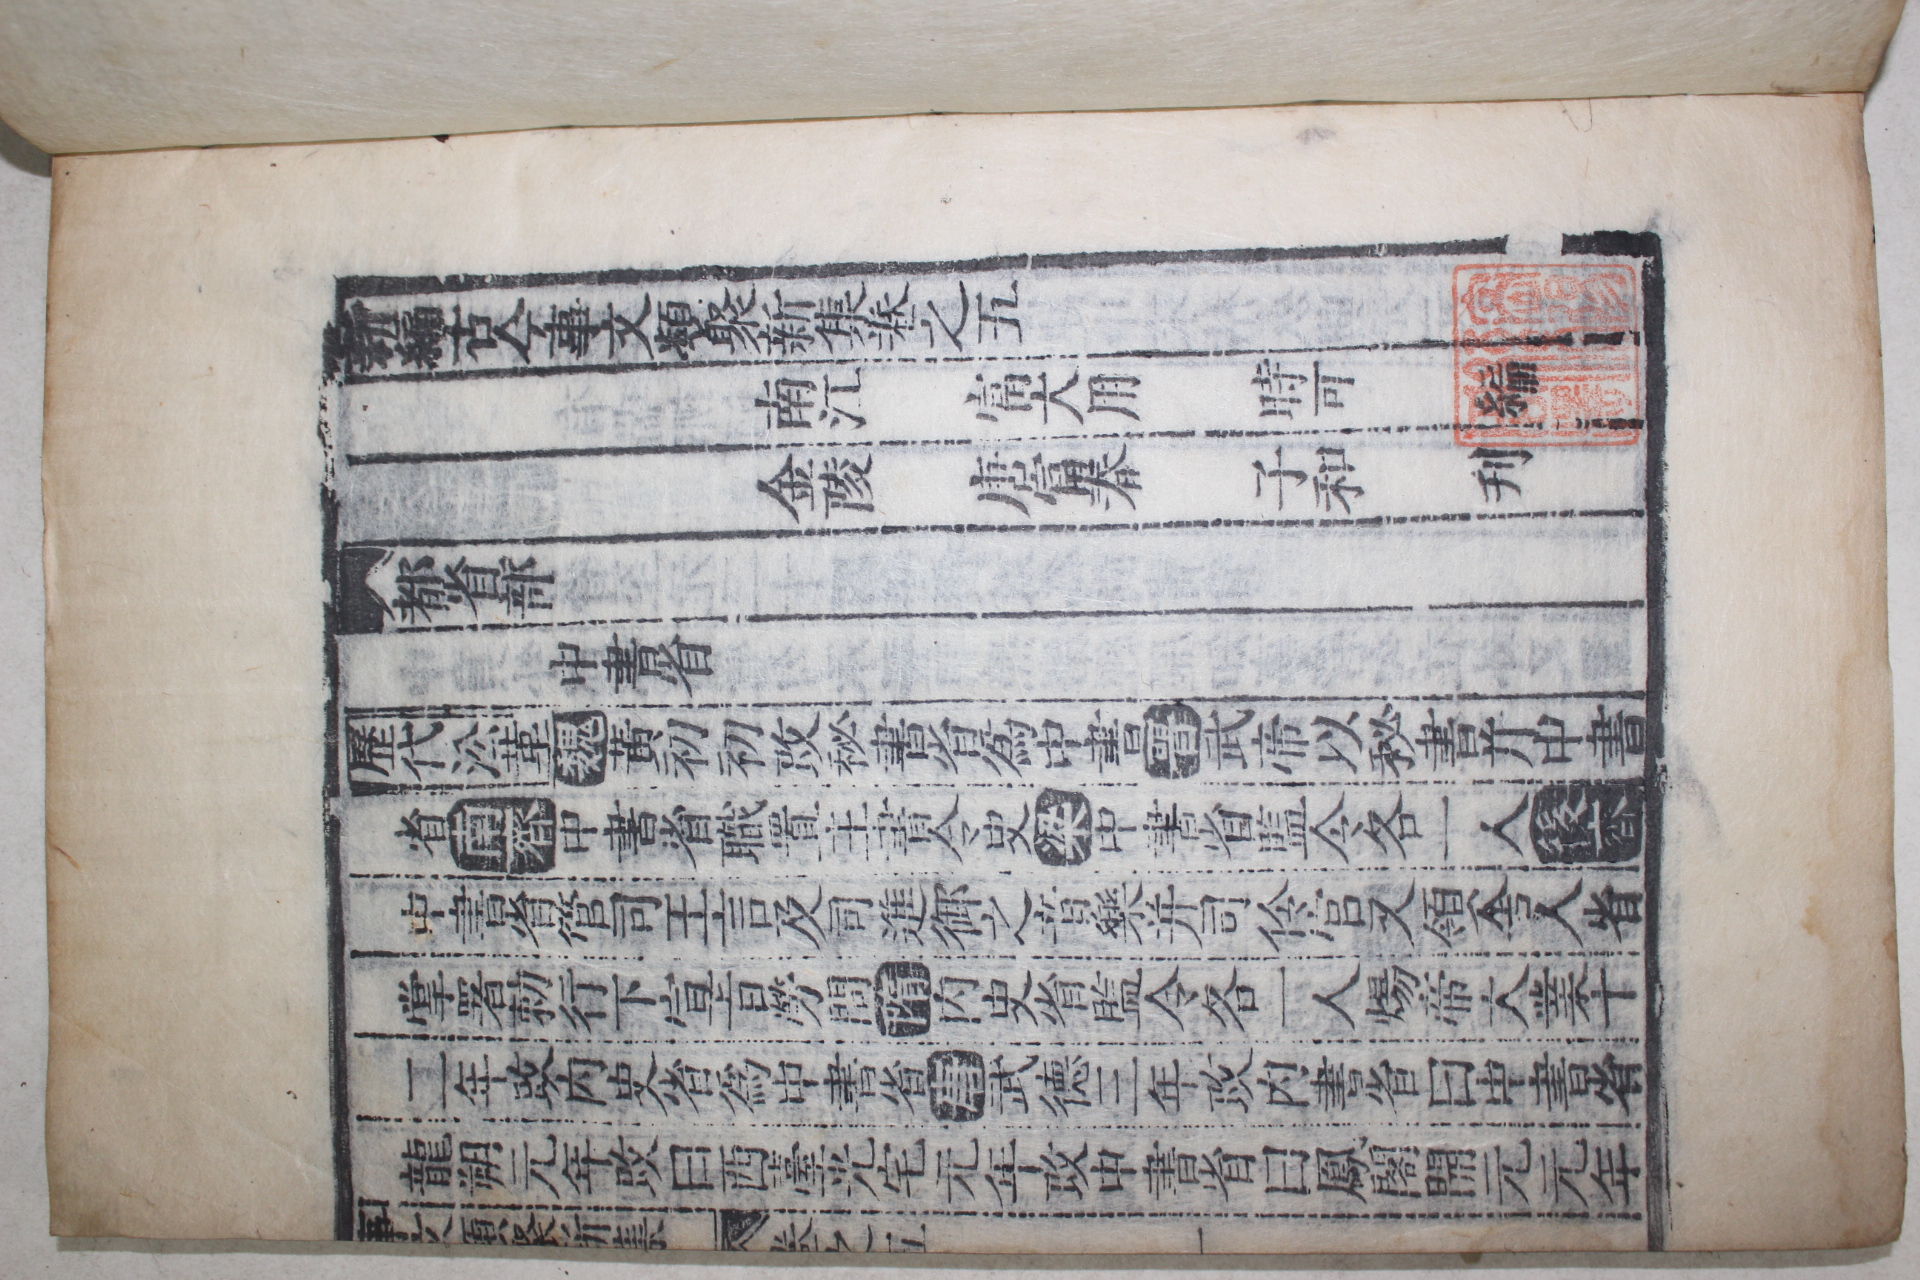 新編古今事文類聚新集卷之五
南江 富大用 時可 編
金陵 唐富春 子和 刊
都省部
中書省
歷代沿革 魏黃初初改秘書省爲中書晉武帝以秘書并中書
省南齊中書省職置主書令史梁中書省監令各一人後齊
中書省管司王言及司進御之音樂并司伶官又領舍人省
掌署勑行下宣旨勞問隋內史省監令各一人煬帝大業十
二年改內史省爲中書省唐武德三年改內書省曰中書省
龍朔元年改曰西臺光宅元年改中書省曰鳳閣開元元年
事文類聚新集 卷之五 一